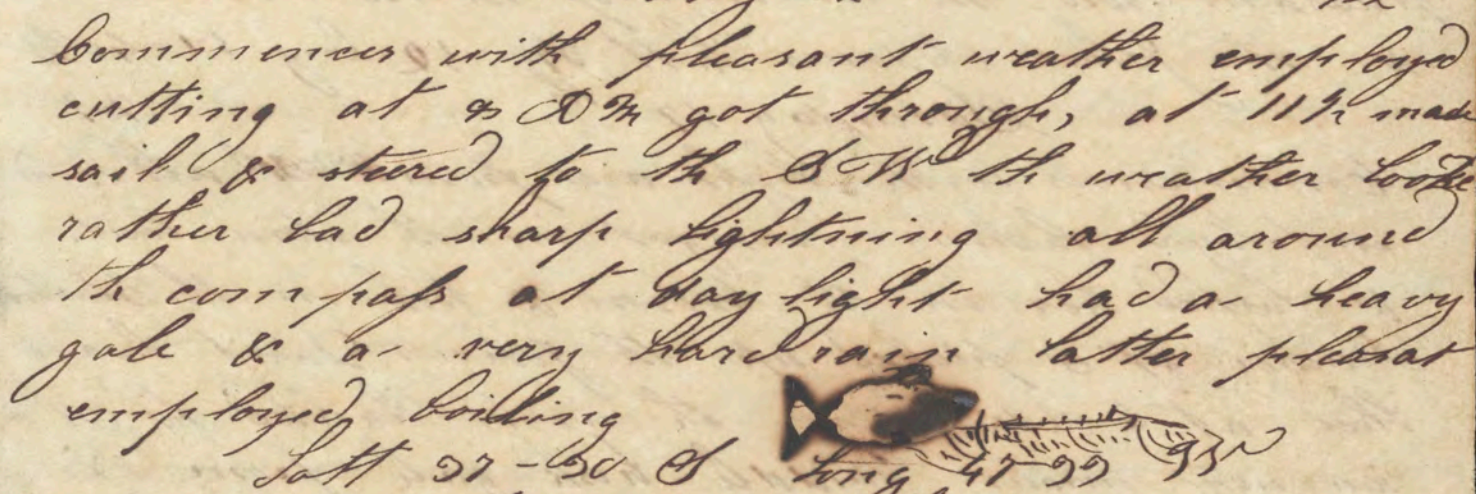 Commences with pleasant weather employed
cutting at 8 PM got through, at 11 h made
sail & steered to the SW the weather looks
rather bad sharp lightning all around
the compass at day light had a heavy
gale & a very hard rain latter pleasat
employed boiling
Latt 37-30 S Long 47-